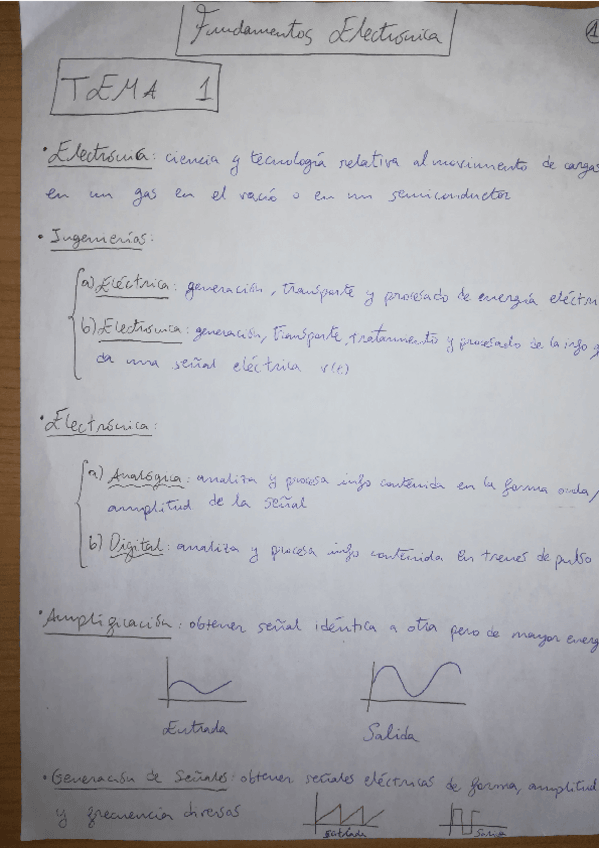 Fundamentos Electrónica
1
TEMA 1
• Electrónica: ciencia y tecnología relativa al movimiento de cargas
en un gas en el vacío o en un semiconductor
• Ingenierías:
a) Eléctrica: generación, transporte y procesado de energía eléctri
b) Electrónica: generación, transporte, tratamiento y procesado de la info q
da una señal eléctrica v(t)
• Electrónica:
a) Analógica: analiza y procesa info contenida en la forma onda/
amplitud de la señal
b) Digital: analiza y procesa info contenida en trenes de pulso
• Amplificación: obtener señal idéntica a otra pero de mayor energ
Entrada Salida
• Generación de Señales: obtener señales eléctricas de forma, amplitud
y frecuencia diversas
Salida